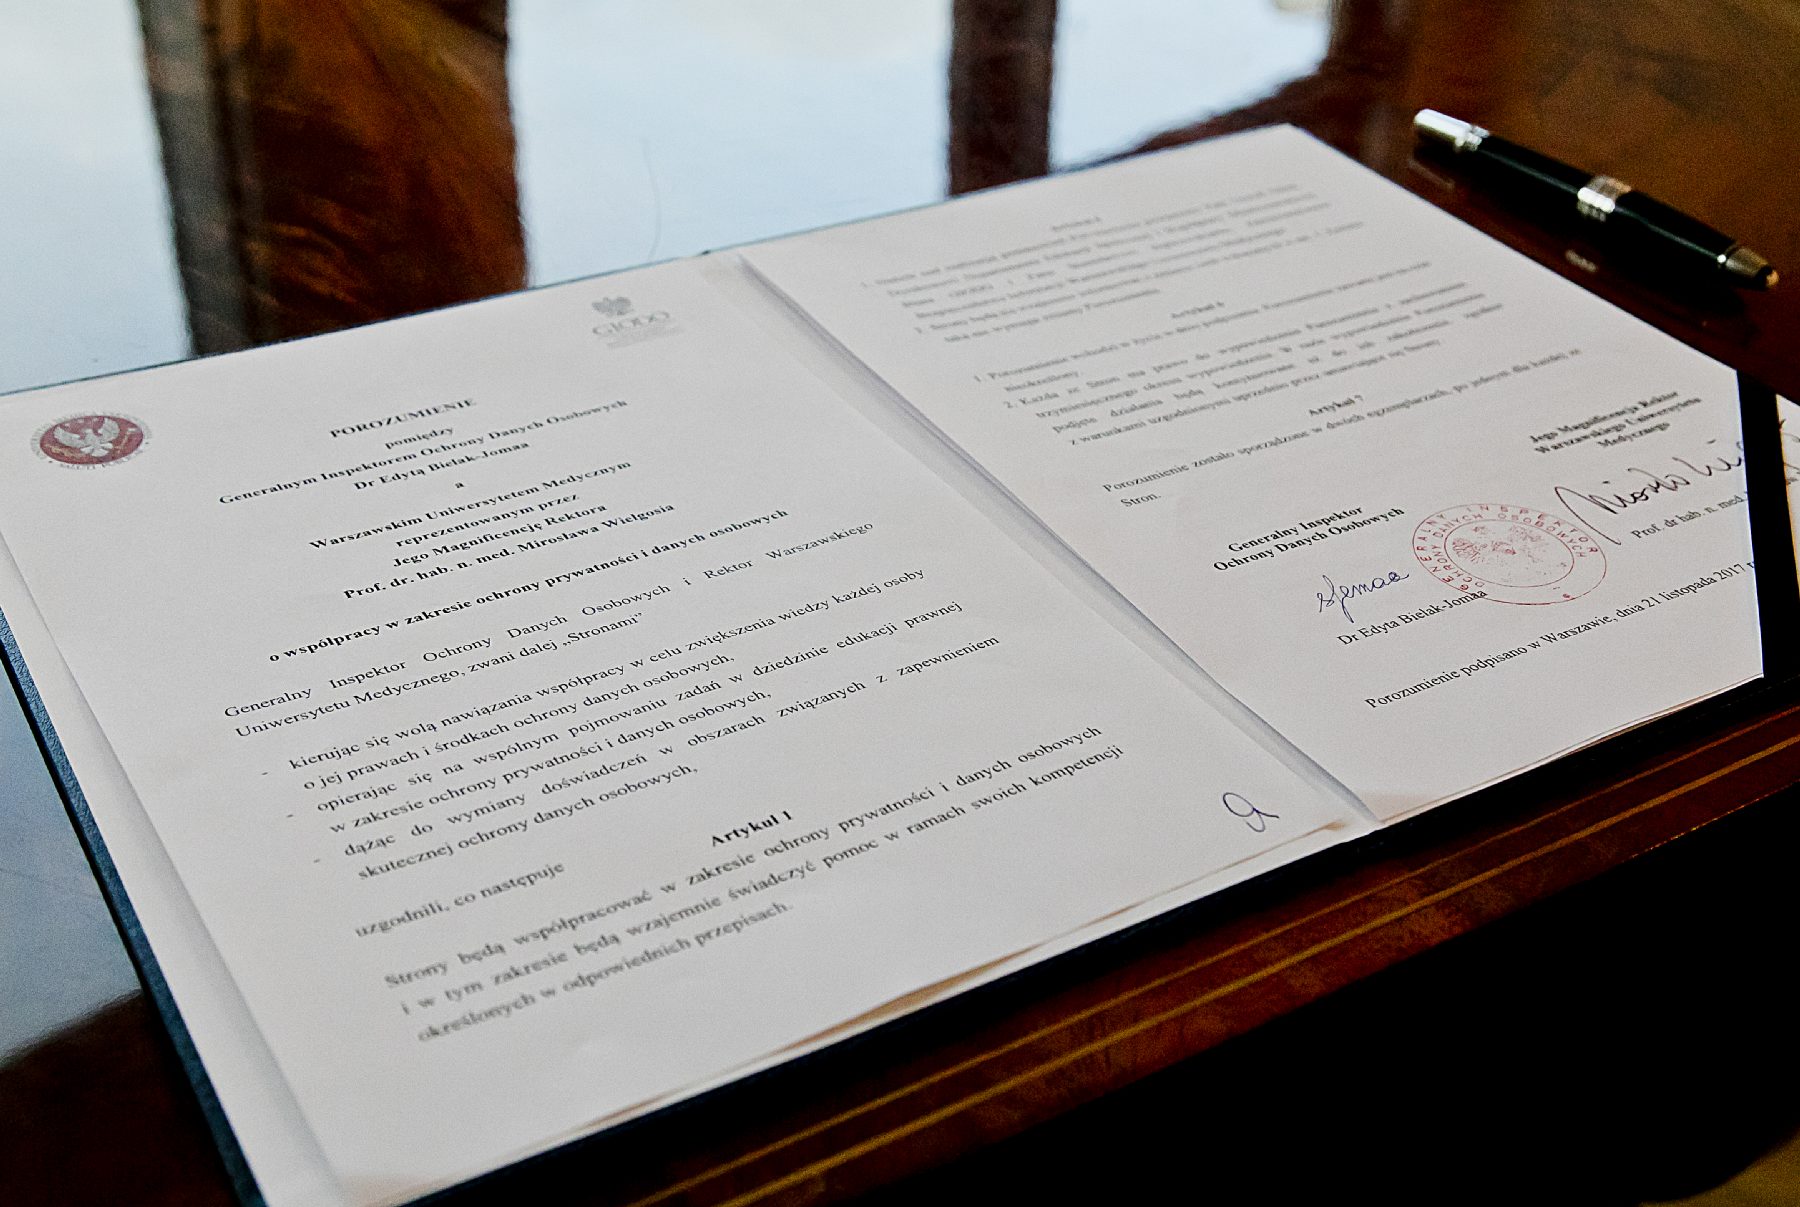 GIODO
POROZUMIENIE
pomiędzy
Generalnym Inspektorem Ochrony Danych Osobowych
Dr Edytą Bielak-Jomaa
a
Warszawskim Uniwersytetem Medycznym
reprezentowanym przez
Jego Magnificencję Rektora
Prof. dr. hab. n. med. Mirosława Wielgosia
o współpracy w zakresie ochrony prywatności i danych osobowych
Generalny Inspektor Ochrony Danych Osobowych i Rektor Warszawskiego
Uniwersytetu Medycznego, zwani dalej „Stronami”
- kierując się wolą nawiązania współpracy w celu zwiększenia wiedzy każdej osoby
o jej prawach i środkach ochrony danych osobowych,
- opierając się na wspólnym pojmowaniu zadań w dziedzinie edukacji prawnej
w zakresie ochrony prywatności i danych osobowych,
- dążąc do wymiany doświadczeń w obszarach związanych z zapewnieniem
skutecznej ochrony danych osobowych,
uzgodnili, co następuje
Artykuł 1
Strony będą współpracować w zakresie ochrony prywatności i danych osobowych
i w tym zakresie będą wzajemnie świadczyć pomoc w ramach swoich kompetencji
określonych w odpowiednich przepisach.
Artykuł 6
1. Porozumienie wchodzi w życie w dniu podpisania
nieokreślony.
2. Każda ze Stron ma prawo do wypowiedzenia Porozumienia z zachowaniem
trzymiesięcznego okresu wypowiedzenia. W razie wypowiedzenia Porozumienia
podjęte działania będą kontynuowane aż do ich zakończenia zgodnie
z warunkami uzgodnionymi uprzednio przez umawiające się Strony.
Artykuł 7
Porozumienie zostało sporządzone w dwóch egzemplarzach, po jednym dla każdej ze
Stron.
Jego Magnificencja Rektor
Warszawskiego Uniwersytetu
Medycznego
Generalny Inspektor
Ochrony Danych Osobowych
GENERALNY INSPEKTOR
OCHRONY DANYCH OSOBOWYCH
Prof. dr hab. n. med.
Dr Edyta Bielak-Jomaa
Porozumienie podpisano w Warszawie, dnia 21 listopada 2017 r